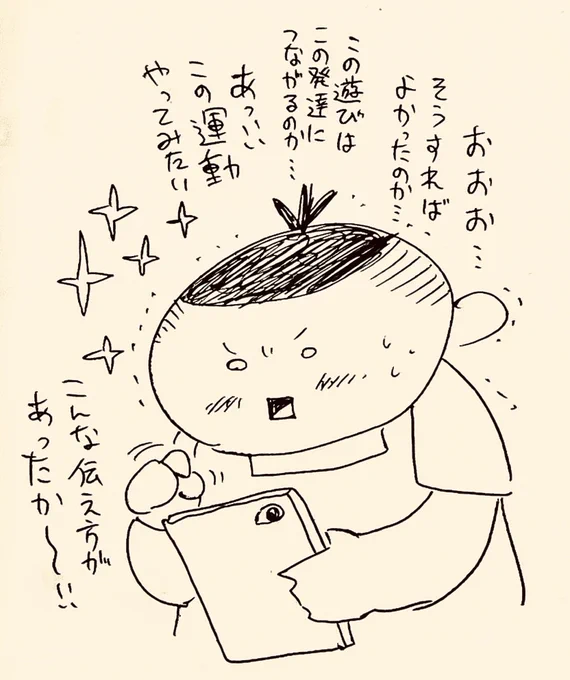 おおお…
そうすれば
よかったのか…
この遊びは
この発達に
つながるのか…
あっいい
この運動
やってみたい
こんな伝え方が
あったか〜!!